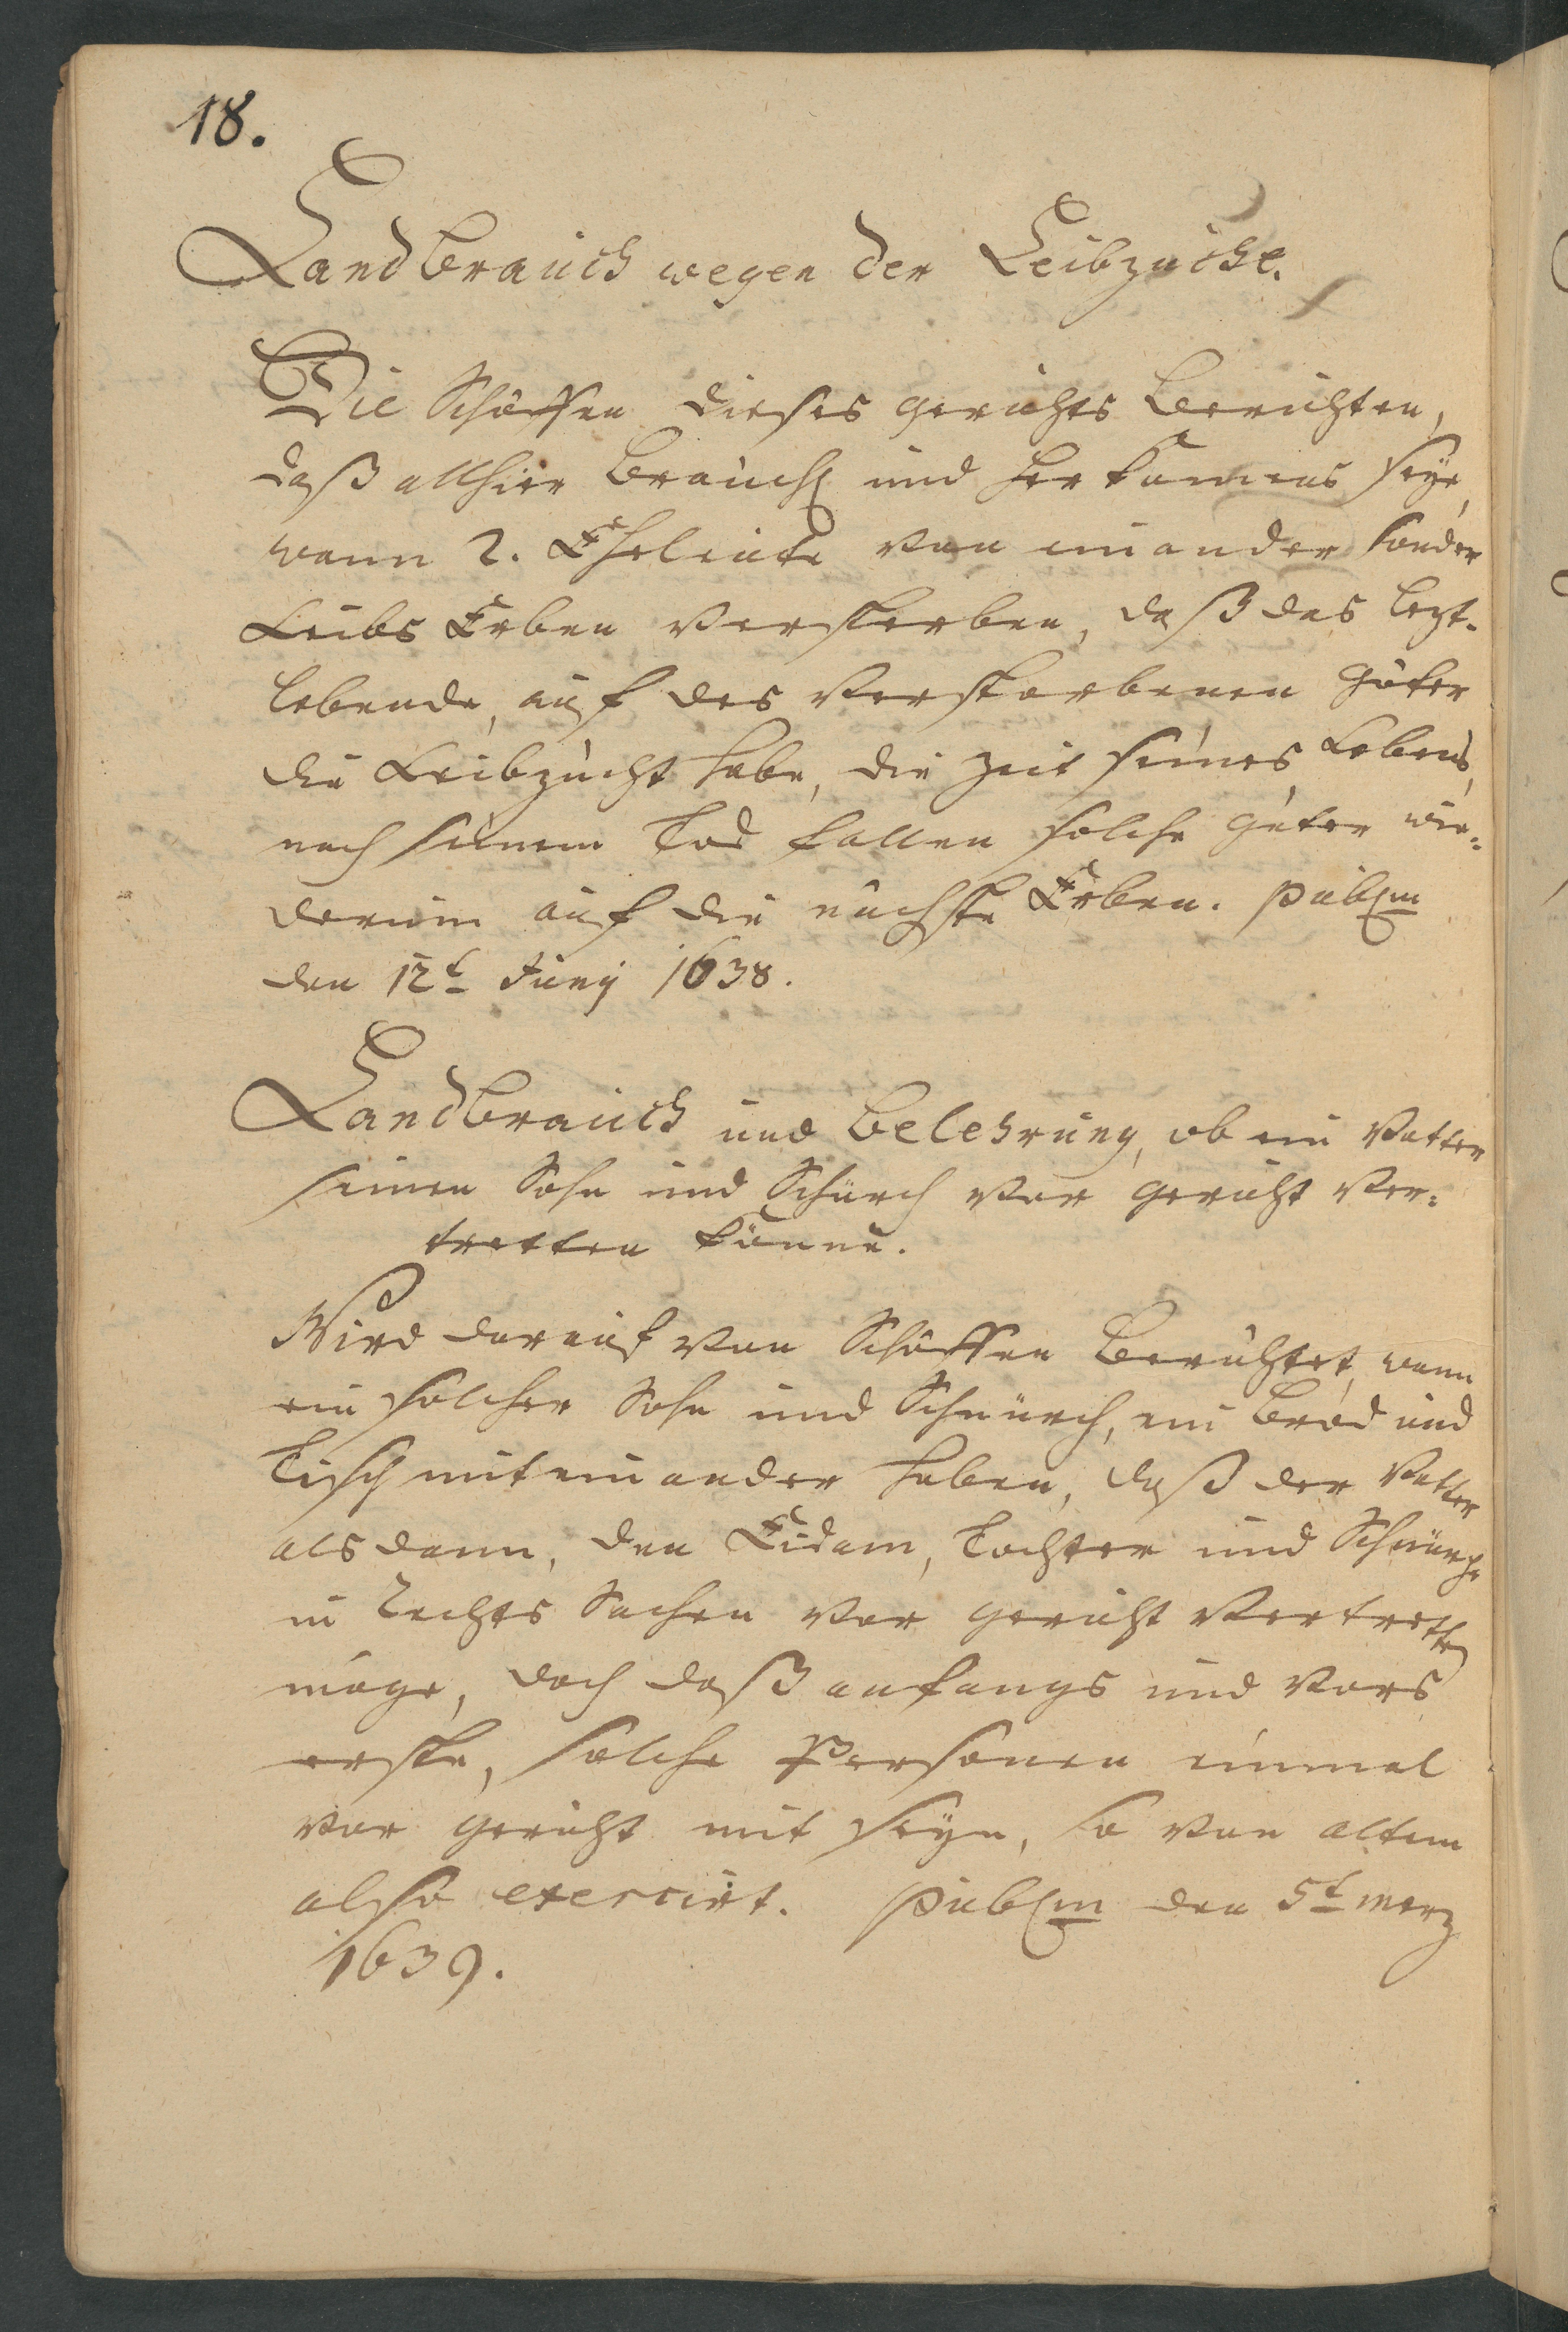 18.
Landbrauch wegen der Leibzucht.
Die Schöffen dieses gerichts Berichten,
daß allhier Brauch und herkommens seye,
wann 2. Eheleute von einander sonder
Leibs Erben versterben, daß das lezt-
lebende, auf des verstorbenen Güter
die Leibzucht habe, die Zeit seines Lebens,
nach seinem Tod fallen solche Güter wie=
derum auf die nächste Erben. Publm
den 12t Junij 1638.
Landbrauch und Belehrung, ob ein Vatter
seinen Sohn und Schnürch vor gericht ver=
tretten könne.
Wird darauf von Schöffen Berichtet, wann
ein solcher Sohn und Schnürch, ein Brod und
Tisch miteinander haben, daß der Vatter
als dann, den Eidam, Tochter und Schnürche
in Rechts Sachen vor gericht vertretten
möge, doch daß anfangs und vors
erste, solche Personen einmal
vor gericht mit seyn, so von altem
also exercirt. Publm den 5t merz
1639.